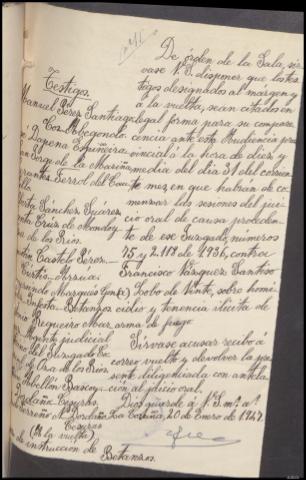 De órden de la Sala, sir-
vase V.S. disponer que los tes-
tigos designados al margen y
a la vuelta, sean citados en
legal forma para su compare-
cencia ante esta Audiencia pro-
vincial á la hora de diez y
media del dia 31 del corrien-
te mes, en que habran de co-
menzar las sesiones del jui-
cio oral de causa proceden-
te de ese Juzgado, números
75 y 2.118 de 1936, contra
Francisco Vázquez Santiso
(a) Lobo de Vinte, sobre homi-
cidio y tenencia ilicita de
arma de fuego
Sirvase acusar recibo á
correo vuelto y devolver la pre-
sente diligenciada con antela-
ción al juicio oral.
Dios guarde á V.S. ms. as.
La Coruña, 20 de Enero de 1947.
Testigos.
Manuel Pérez Santiago
Cos-Abegondo
Dopena Espiñeira
San Jorge de la Mariña
Ferrol del Cau-
Sánchez Suárez
Santa Cruz de Mondoy
de los Rios
Castelo Pérez
Curtis-Urzuia
Marqués
Betanzos
Regueiro
judicial
del Juzgado
de Oza de los Rios
Cesuras
(A la vuelta)
de instruccion de Betanzos.